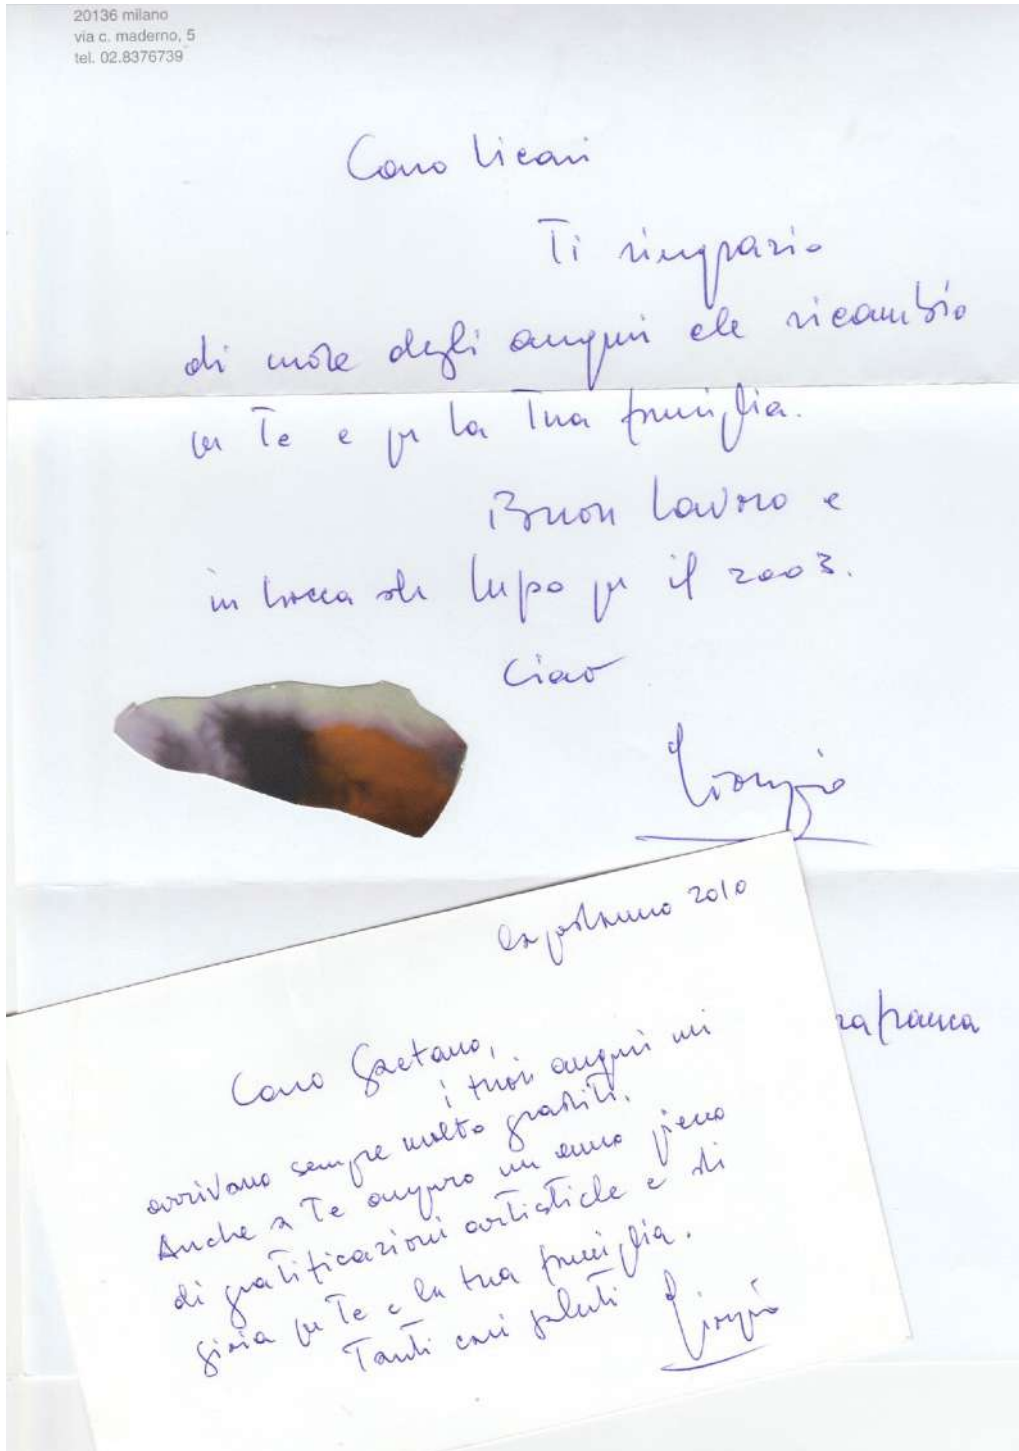 20136 milano
via c. maderno, 5
tel. 02.8376739
Caro Licari
Ti ringrazio
di cuore degli auguri che ricambio
per Te e per la Tua famiglia.
Buon lavoro e
in bocca al lupo per il 2003.
Ciao
Giorgio
capodanno 2010
Caro Gaetano,
i tuoi auguri mi
arrivano sempre molto graditi.
Anche a Te auguro un anno pieno
di gratificazioni artistiche e di
gioia per Te e la tua famiglia.
Tanti cari saluti
Giorgio
rafranca